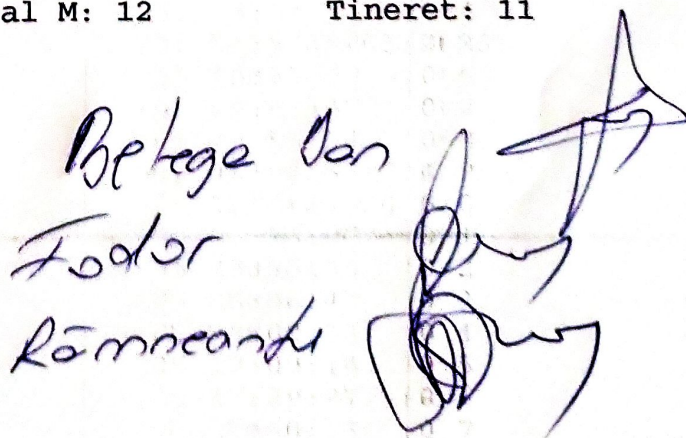 al M: 12 Tineret: 11
Betega Dan
Fodor
Râmneanțu